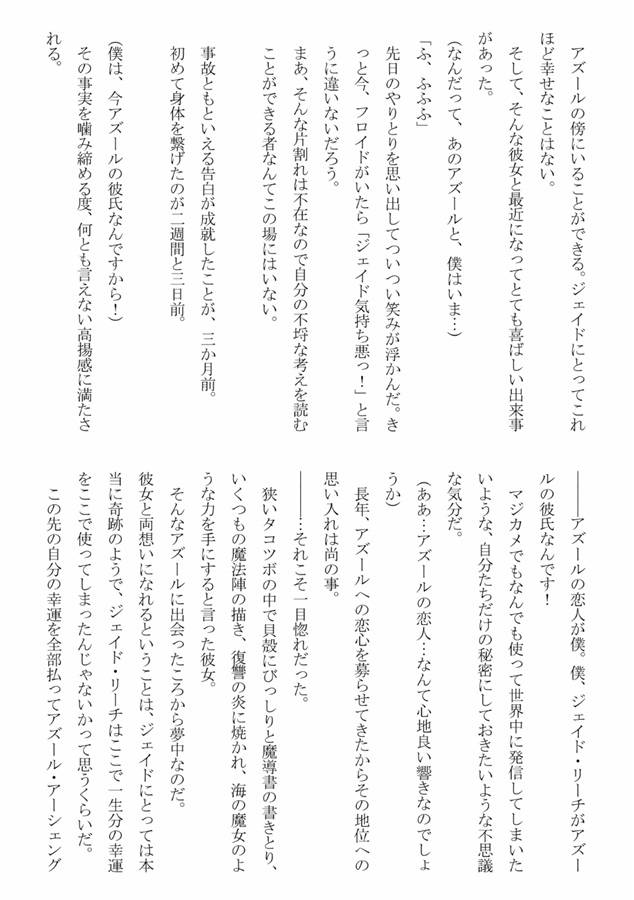 アズールの傍にいることができる。ジェイドにとってこれ
ほど幸せなことはない。
そして、そんな彼女と最近になってとても喜ばしい出来事
があった。
(なんだって、あのアズールと、僕はいま…)
「ふ、ふふふ」
先日のやりとりを思い出してついつい笑みが浮かんだ。き
っと今、フロイドがいたら「ジェイド気持ち悪っ！」と言
うに違いないだろう。
まあ、そんな片割れは不在なので自分の不埒な考えを読む
ことができる者なんてこの場にはいない。
事故ともいえる告白が成就したことが、三か月前。
初めて身体を繋げたのが二週間と三日前。
(僕は、今アズールの彼氏なんですから！)
その事実を噛み締める度、何とも言えない高揚感に満たさ
れる。
――アズールの恋人が僕。僕、ジェイド・リーチがアズー
ルの彼氏なんです！
マジカメでもなんでも使って世界中に発信してしまいた
いような、自分たちだけの秘密にしておきたいような不思議
な気分だ。
(ああ…アズールの恋人…なんて心地良い響きなのでしょ
うか)
長年、アズールへの恋心を募らせてきたからその地位への
思い入れは尚の事。
――…それこそ一目惚れだった。
狭いタコツボの中で貝殻にびっしりと魔導書の書きとり、
いくつもの魔法陣の描き、復讐の炎に焼かれ、海の魔女のよ
うな力を手にすると言った彼女。
そんなアズールに出会ったころから夢中なのだ。
彼女と両想いになれるということは、ジェイドにとっては本
当に奇跡のようで、ジェイド・リーチはここで一生分の幸運
をここで使ってしまったんじゃないかって思うくらいだ。
この先の自分の幸運を全部払ってアズール・アーシェング